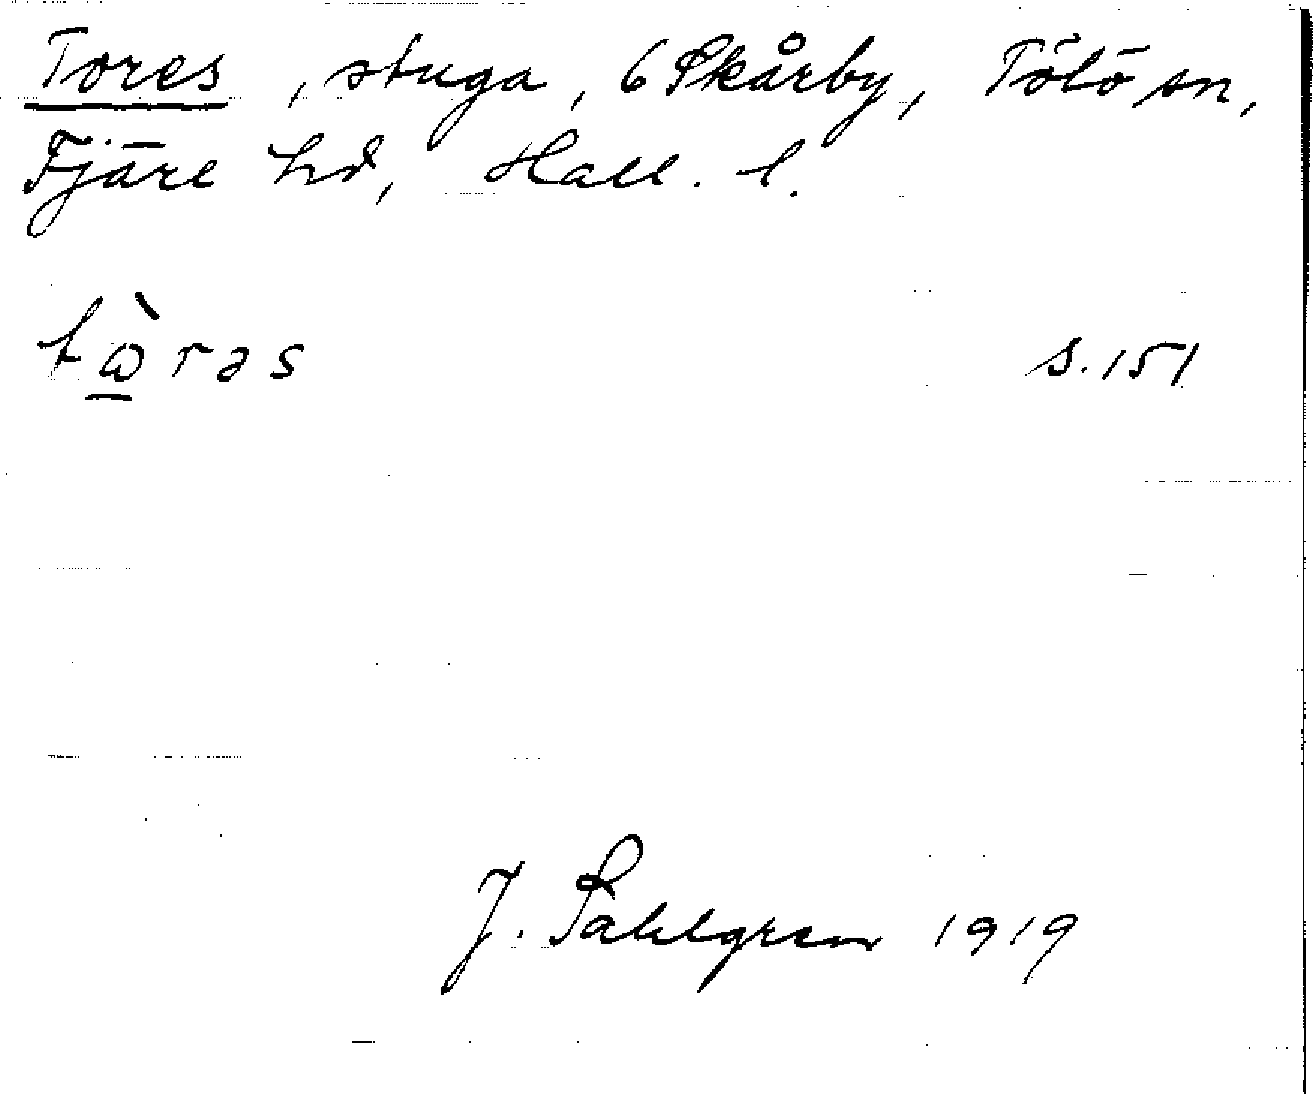 Tores, stuga, 6 Skårby, Tölö sn,
Fjäre hd, Hall. l.
tὼ̲rəs s. 151
J. Sahlgren 1919